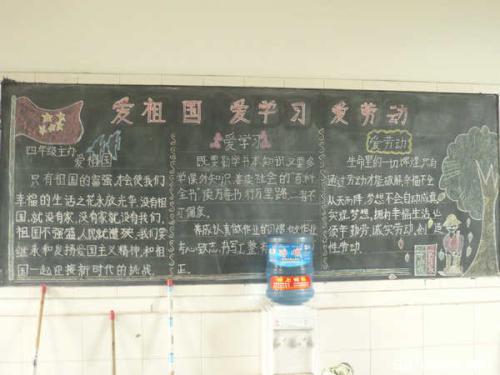 爱祖国 爱学习 爱劳动
四年级主办
爱祖国
只有祖国的富强才会使我们
幸福的生活之花永放光华,没有祖
国,就没有家,没有家就没有我们,
祖国不强盛人民就遭殃,我们要
继承和发扬爱国主义精神,和祖
国一起迎接新时代的挑战.
爱学习
既要勤学书本知识又要多
学课外知识,喜读社会的"百科
全书"读万卷书行万里路,
养成认真做作业的习惯,做作业
专心致志,书写工整
正.
爱劳动
生命里的一切辉煌,只有
通过劳动才能破解,幸福不会
从天而降,梦想不会自动成真
实现梦想,拥有幸福生活
须辛勤劳动,诚实劳动,创造
性劳动.